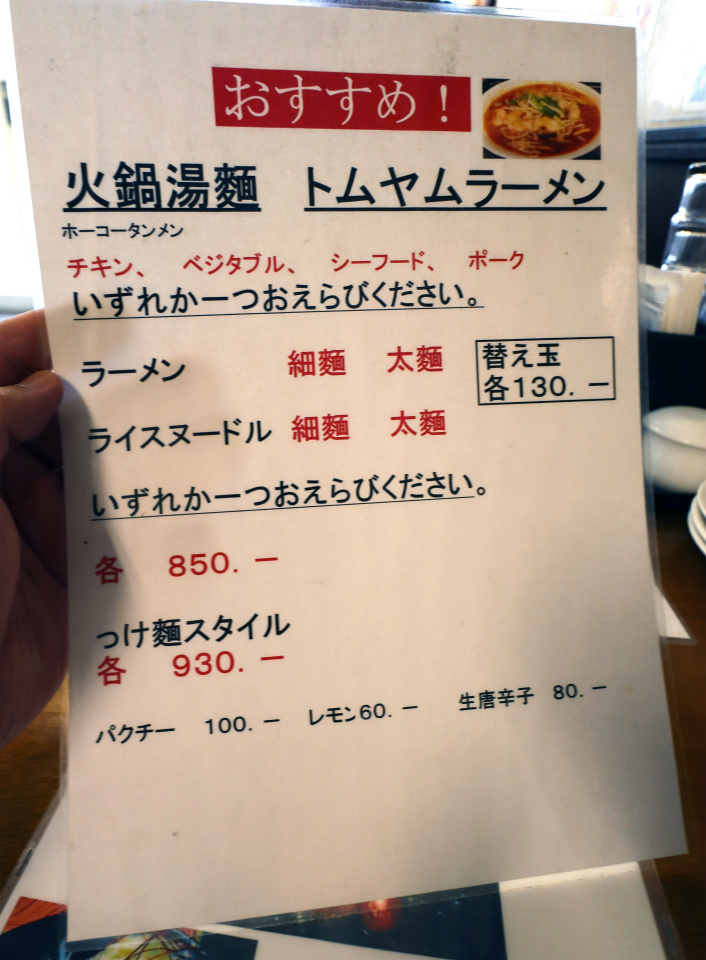 おすすめ！
火鍋湯麵　トムヤムラーメン
ホーコータンメン
チキン、　ベジタブル、　シーフード、　ポーク
いずれか一つおえらびください。
ラーメン　細麵　太麵　替え玉
各130.－
ライスヌードル　細麵　太麵
いずれか一つおえらびください。
各　850.－
っけ麵スタイル
各　930.－
パクチー　100.－　レモン60.－　生唐辛子　80.－